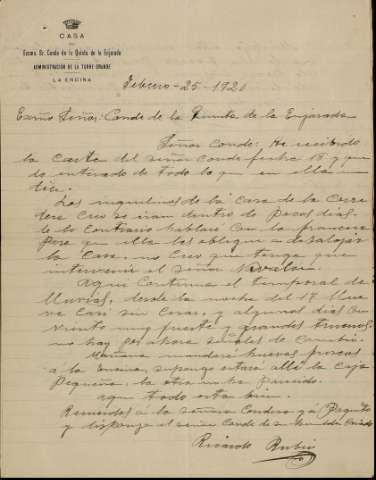 CASA
DEL
Excmo. Sr. Conde de la Quinta de la Enjarada
ADMINISTRACIÓN DE LA TORRE-GRANDE
LA ENCINA
Febrero-25-1920
Exmo Señor: Conde de la Quinta de la Enjarada
Señor Conde: He recibido
la carta del señor Conde fecha 18 y que
do enterado de todo lo que en ella
Los inquilinos de la Casa de la Carre
tera creo se iran dentro de pocos dias,
de lo Contrario hablaré con la
para que ella les obligue a desalojar
la Casa, no creo que tenga que
intervenir el señor
Aqui Continua el temporal de
lluvias, desde la noche del 17 llue
ve casi sin cesar, y algunos dias de
viento muy fuerte y grandes truenos,
no hay por ahora señales de cambio.
Mañana mandaré huevos frescos
a la Encina, supongo estará allí la Caja
pequeña, la otra no ha parecido.
aqui todo esta bien.
Recuerdos á la señora Condesa y á Pepito
y disponga el señor Conde de su
Ricardo Rubio